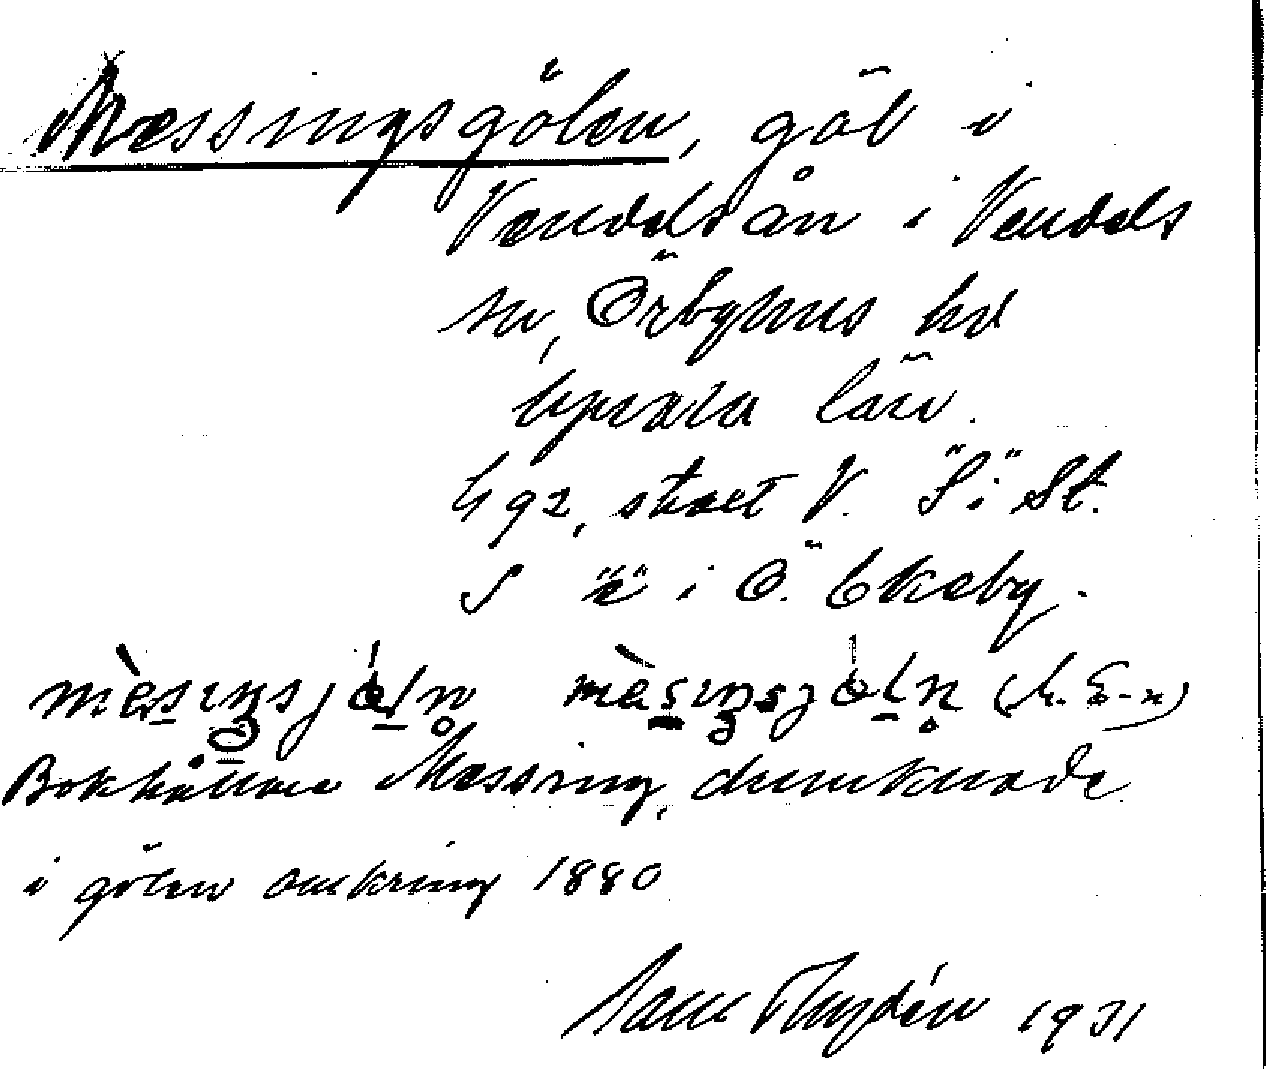 Messingsgölen, göl i
Vendelsån i Vendels
sn, Örbyhus hd
Upsala län.
Gg 2, straxt V. "S" i St.
S "ä" i Ö. Ekeby.
mèsıŋsjóln mèsıŋsjóln
Bokhållare Messing, drunknade
i gölen omkring 1880
1931